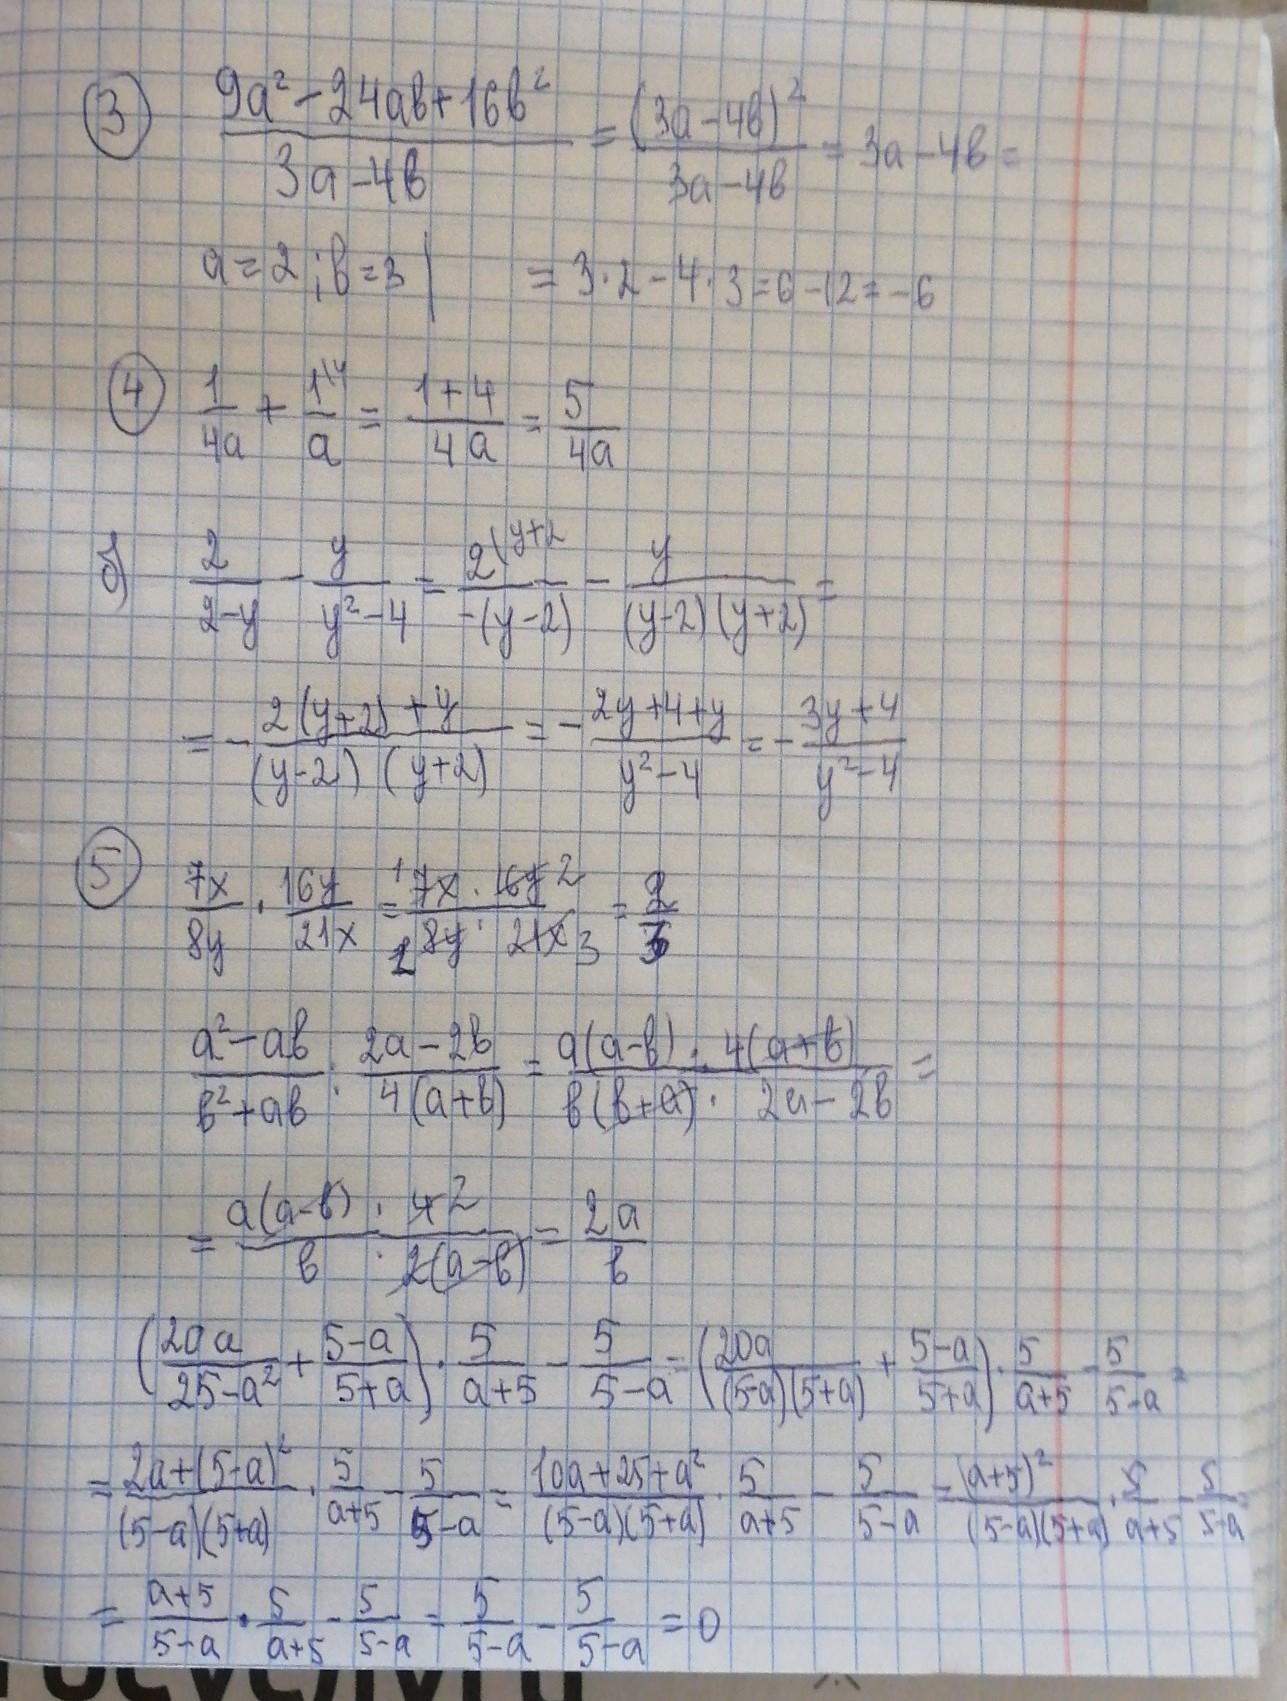 ③ (9a² - 24aв + 16в²)/(3a - 4в) = (3a - 4в)²/(3a - 4в) = 3a - 4в =
a = 2 ; в = 3 | = 3 · 2 - 4 · 3 = 6 - 12 = -6
④ 1/4a + 1\4/a = (1 + 4)/4a = 5/4a
б) 2/(2-y) - y/(y² - 4) = 2\y+2/-(y-2) - y/(y-2)(y+2) =
= - (2(y+2) + y)/(y-2)(y+2) = - (2y+4+y)/(y² - 4) = - (3y+4)/(y² - 4)
⑤ 7x/8y · 16y/21x = 1 7x · 16y 2/1 8y · 21x 3 = 2/3
(a² - aв)/(в² + aв) : (2a - 2в)/4(a+в) = a(a-в) · 4(a+в)/в(в+a) · 2a - 2в =
= a(a-в) · 4 2/в · 2(a-в) = 2a/в
(20a/(25 - a²) + (5-a)/(5+a)) · 5/(a+5) - 5/(5-a) = (20a/(5-a)(5+a) + (5-a)/(5+a)) · 5/(a+5) - 5/(5-a) =
= (2a+(5-a)²)/(5-a)(5+a) · 5/(a+5) - 5/(5-a) = (10a+25+a²)/(5-a)(5+a) · 5/(a+5) - 5/(5-a) = (a+5)²/(5-a)(5+a) · 5/(a+5) - 5/(5-a)
= (a+5)/(5-a) · 5/(a+5) - 5/(5-a) = 5/(5-a) - 5/(5-a) = 0